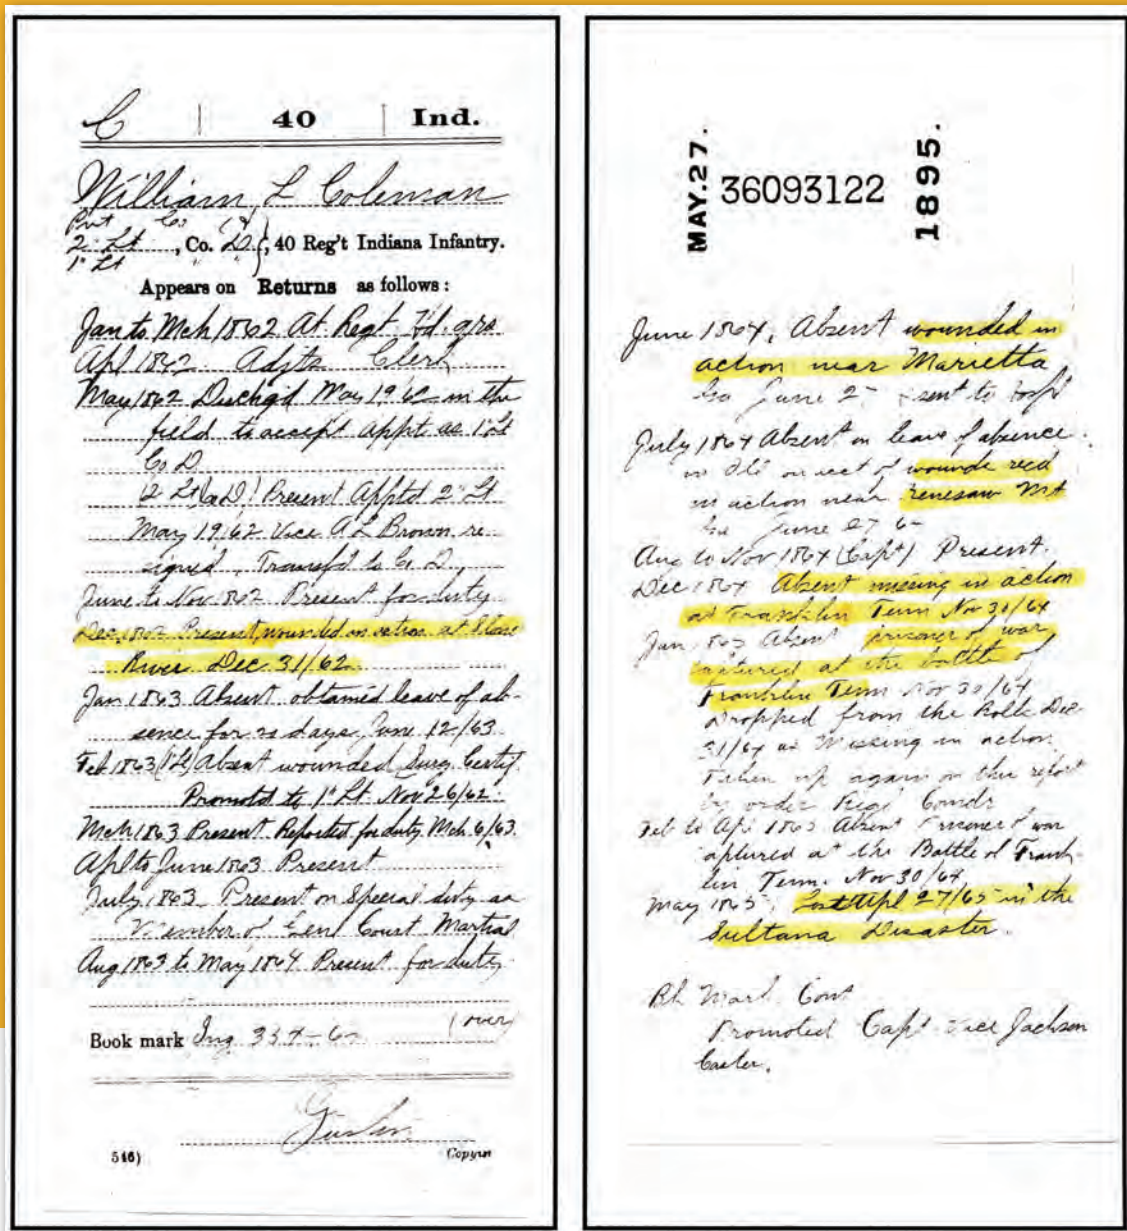 C | 40 | Ind.
William L Coleman
Pvt Co
2" Lt, Co. D, 40 Reg't Indiana Infantry.
1" Lt
Appears on Returns as follows:
Jan to Mch 1862 At Regt Hd. qrs
Apl 1862 Adjts Clerk
May 1862 Dischgd May 19 62 in the
field to accept appt as
Co D
2 Lt Co D Present Apptd 2" Lt
May 19, 62 Vice A L Brown re-
signed. Transfd to Co D.
June to Nov 1862 Present for duty
Dec, 1862 Present, wounded in action at Stone
River Dec 31/62
Jan 1863 Absent obtained leave of ab-
sence for days 12/63
Feb 1863 (1" Lt) Absent wounded Surg. Certif.
Promotd to 1" Lt Nov 26/62
Mch 1863 Present Reported for duty Mch 6/63.
Apl to June 1863 Present
July 1863 Present on Special duty as
Member of Genl Court Martial
Aug 1863 to May 1864 Present for duty
Book mark (over)
546) Copyist
MAY.27. 36093122 1895.
June 1864, Absent wounded in
action near Marietta
Ga June sent to
July 1864 Absent on leave of absence
in on acct of wounds recd
in action near Mt
Ga June 27
Aug to Nov 1864 (Capt) Present.
Dec 1864 Absent missing in action
at Franklin Tenn Nov 30/64
Jan 1865 Absent prisoner of war
captured at the battle of
Franklin Tenn Nov 30/64
Dropped from the Rolls Dec
31/64 as Missing in action
Taken up again on this report
by order Regt Comdr
Feb to Apl 1865 Absent Prisoner of war
captured at the Battle of Frank-
lin Tenn. Nov 30/64
May 1865, Lost Apl 27/65 in the
Sultana Disaster.
Promoted Capt Vice Jackson